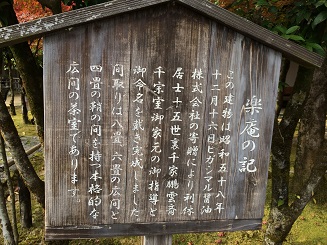 楽庵の記
この建物は昭和五十八年
十二月十六日ヒガシマル醤油
株式会社の寄贈により利休
居士十五世裏千家鵬雲斎
千宗室御家元の御指導と
御命名を戴き完成しました
間取りは八畳、六畳の広間と
四畳の鞘の間を持つ本格的な
広間の茶室であります。